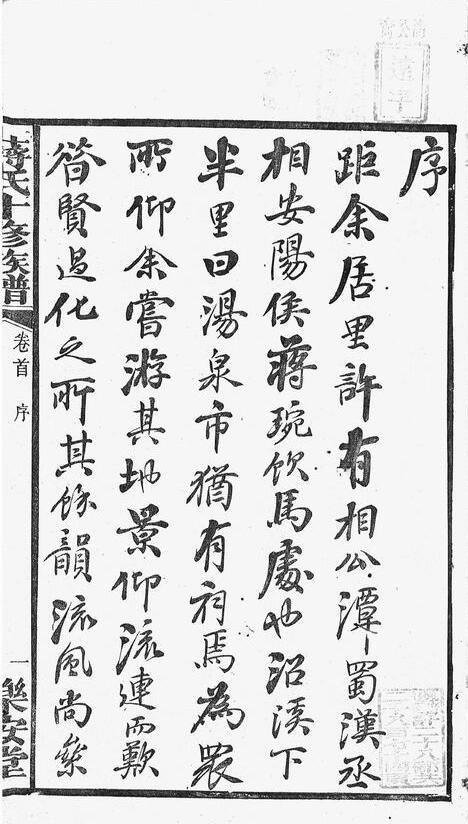 序
距余居里許有相公潭蜀漢丞
相安陽侯蔣琬飲馬處也沿溪下
半里曰湯泉市猶有祠焉為眾
所仰余嘗游其地景仰流連而歎
昔賢過化之所其餘韻流風尚
蔣氏十修族譜
卷首 序
一
樂安堂